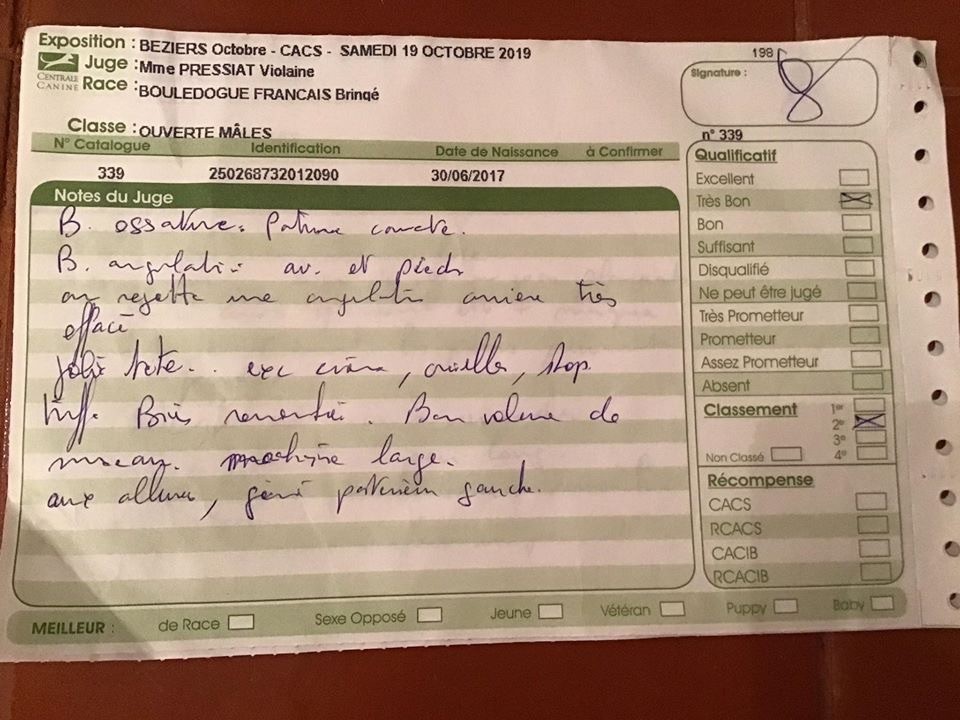 Exposition : BEZIERS Octobre - CACS - SAMEDI 19 OCTOBRE 2019
198
CENTRALE
CANINE
Juge : Mme PRESSIAT Violaine
Signature :
Race : BOULEDOGUE FRANCAIS Bringé
Classe : OUVERTE MÂLES
n° 339
N° Catalogue Identification Date de Naissance à Confirmer
339 250268732012090 30/06/2017
Notes du Juge
B. ossature. Poitrine correcte.
B. angulation av. et pieds
on regrette une angulation arrière très
effacé
Jolie tête.. exc crâne, oreilles, stop
Bien remontée. Bon volume de
museau. machoire large.
aux allures, gêné postérieur gauche.
Qualificatif
Excellent
Très Bon
Bon
Suffisant
Disqualifié
Ne peut être jugé
Très Prometteur
Prometteur
Assez Prometteur
Absent
Classement 1er
2e
3e
Non Classé 4e
Récompense
CACS
RCACS
CACIB
RCACIB
MEILLEUR : de Race Sexe Opposé Jeune Vétéran Puppy Baby